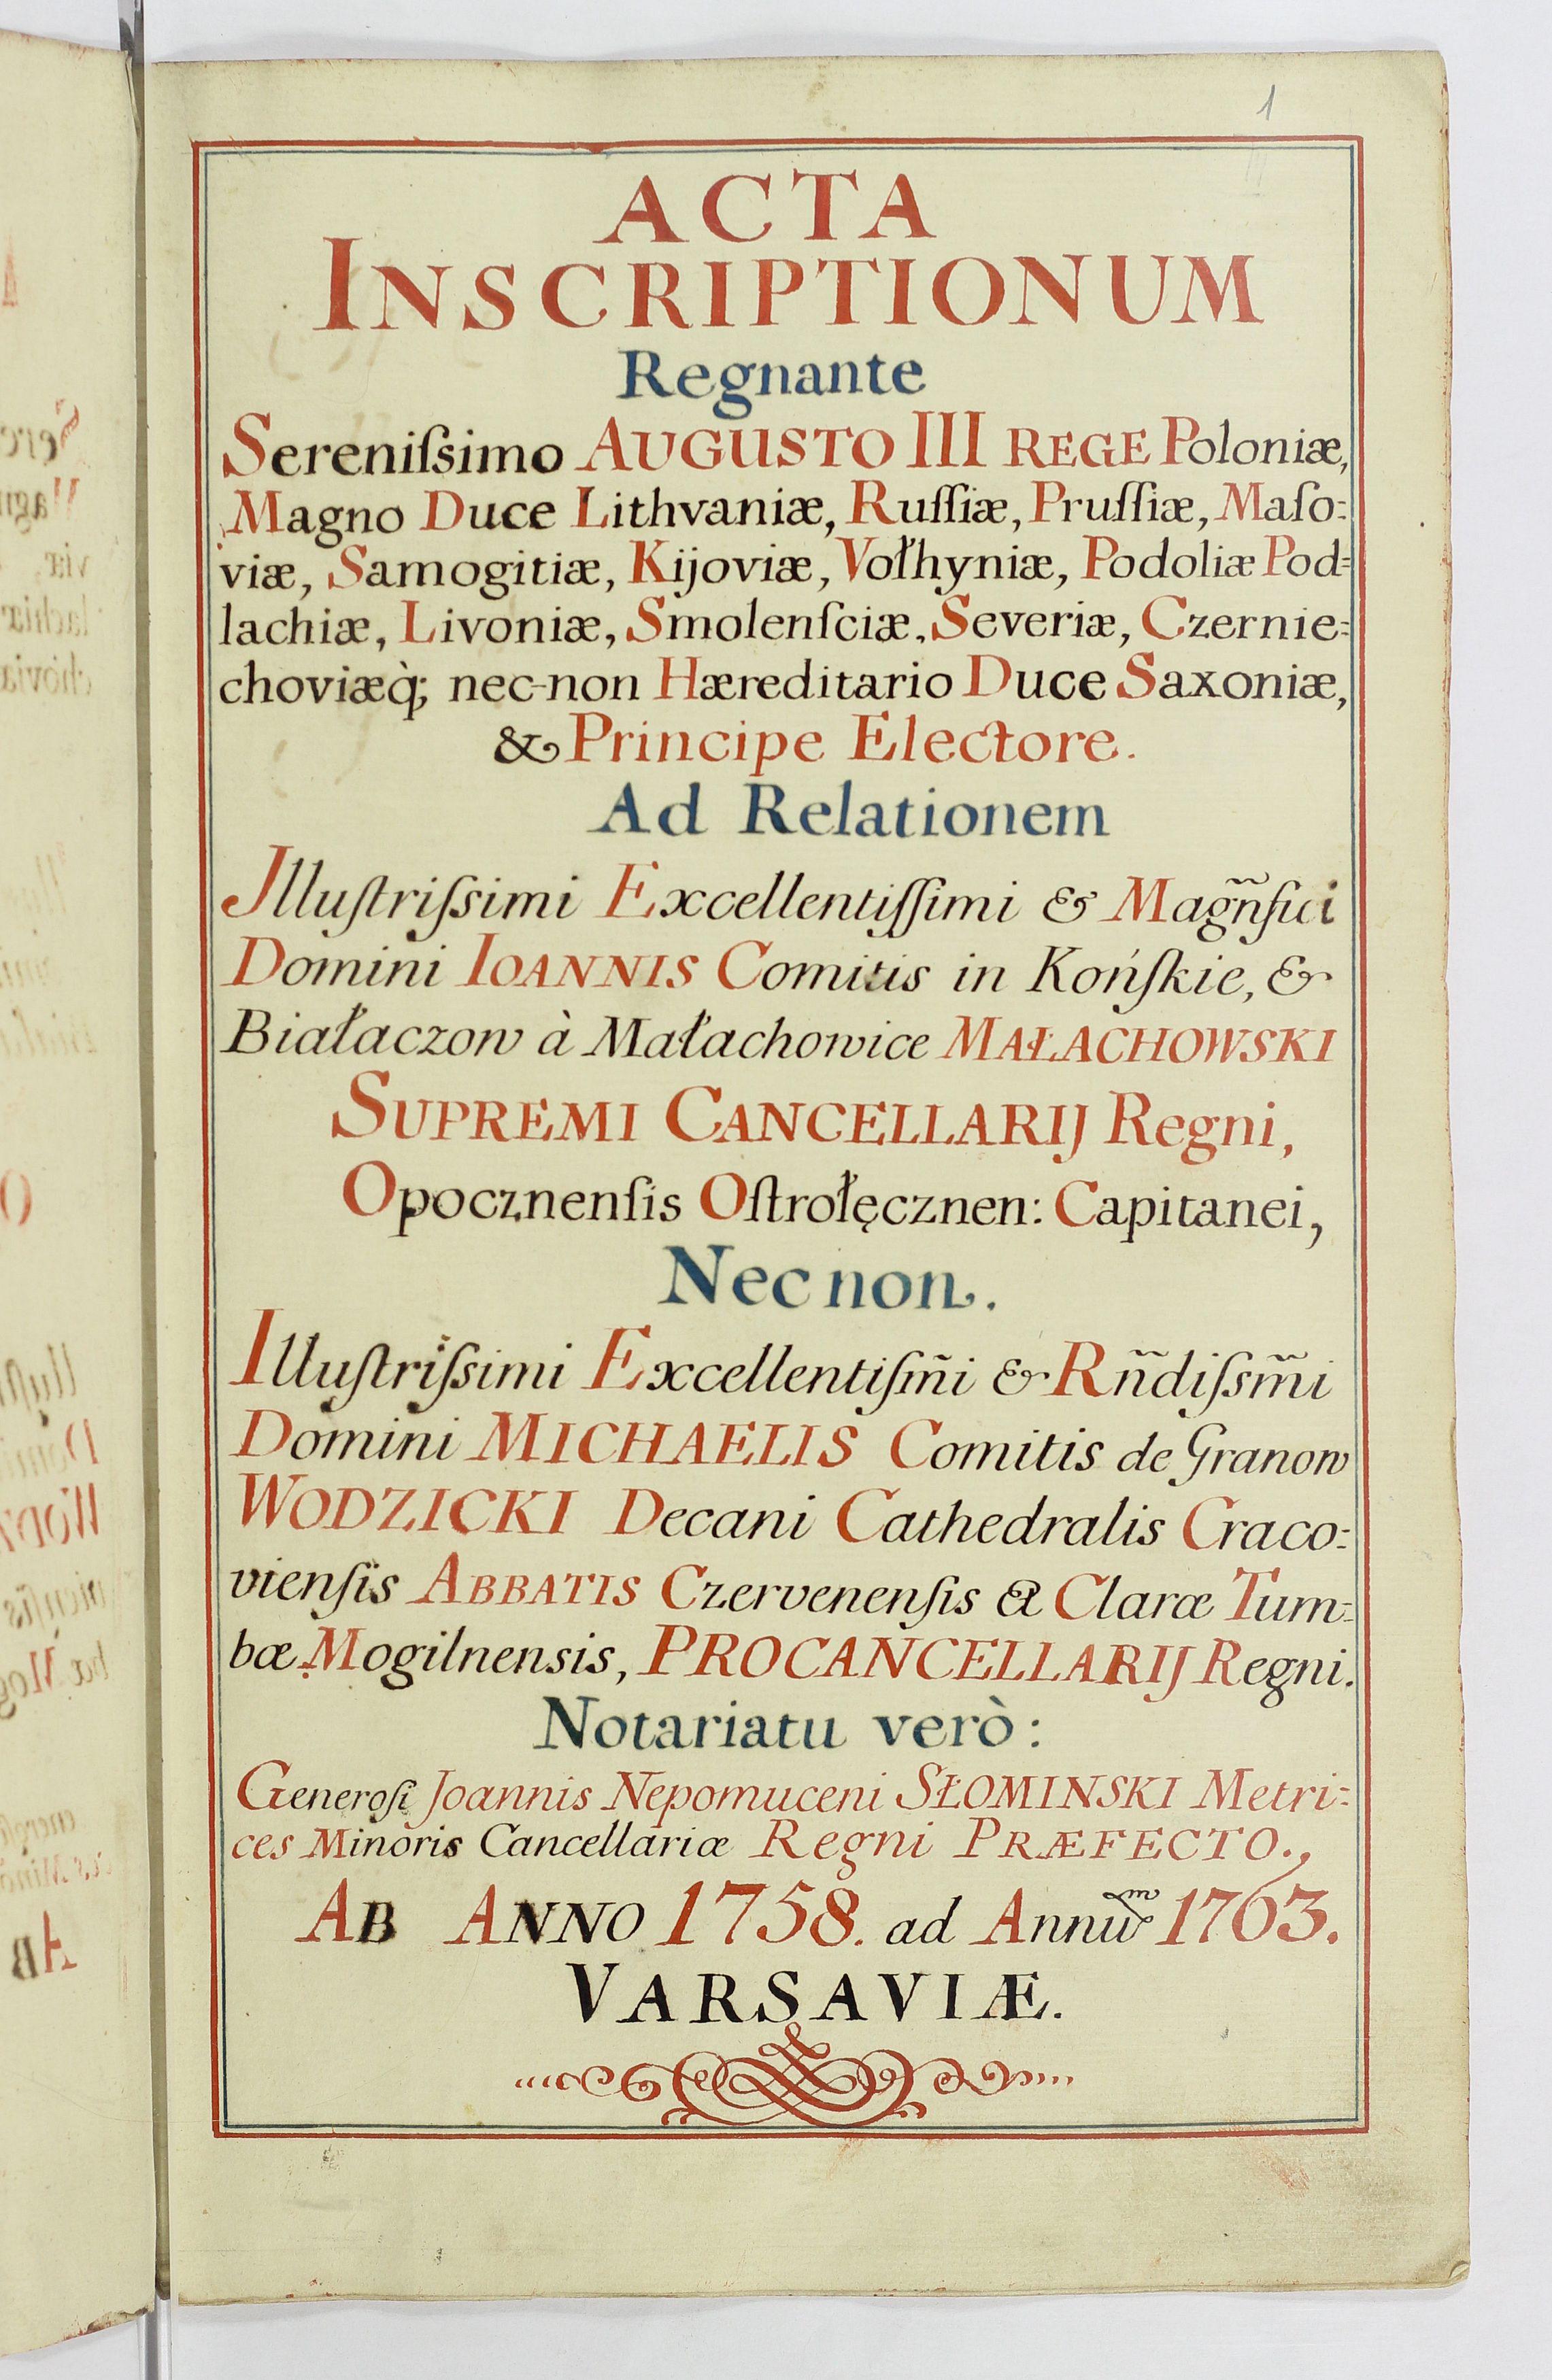 1
ACTA
INSCRIPTIONUM
Regnante
Sereniſsimo AUGUSTO III REGE Poloniæ,
Magno Duce Lithvaniæ, Ruſſiæ, Pruſſiæ, Maſo:
viæ, Samogitiæ, Kijoviæ, Vołhyniæ, Podoliæ Pod=
lachiæ, Livoniæ, Smolenſciæ, Severiæ, Czernie=
choviæq̀; nec-non Hæreditario Duce Saxoniæ,
& Principe Electore.
Ad Relationem
Jlluſtriſsimi Excellentiſſimi & Magñſici
Domini IOANNIS Comitis in Końſkie, &
Białaczow à Małachowice MAŁACHOWSKI
SUPREMI CANCELLARIJ Regni,
Opocznenſis Oſtrołęcznen: Capitanei,
Necnon.
Illuſtriſsimi Excellentiſm̃i & Rñdiſsm̃i
Domini MICHAELIS Comitis de Granow
WODZICKI Decani Cathedralis Craco:
vienſis ABBATIS Czervenenſis & Claræ Tum=
bæ Mogilnensis, PROCANCELLARIJ Regni.
Notariatu verò:
Generoſi Joannis Nepomuceni SŁOMINSKI Metri=
ces Minoris Cancellariæ Regni PRÆFECTO.,
AB ANNO 1758. ad Annuᵐ 1763.
VARSAVIÆ.